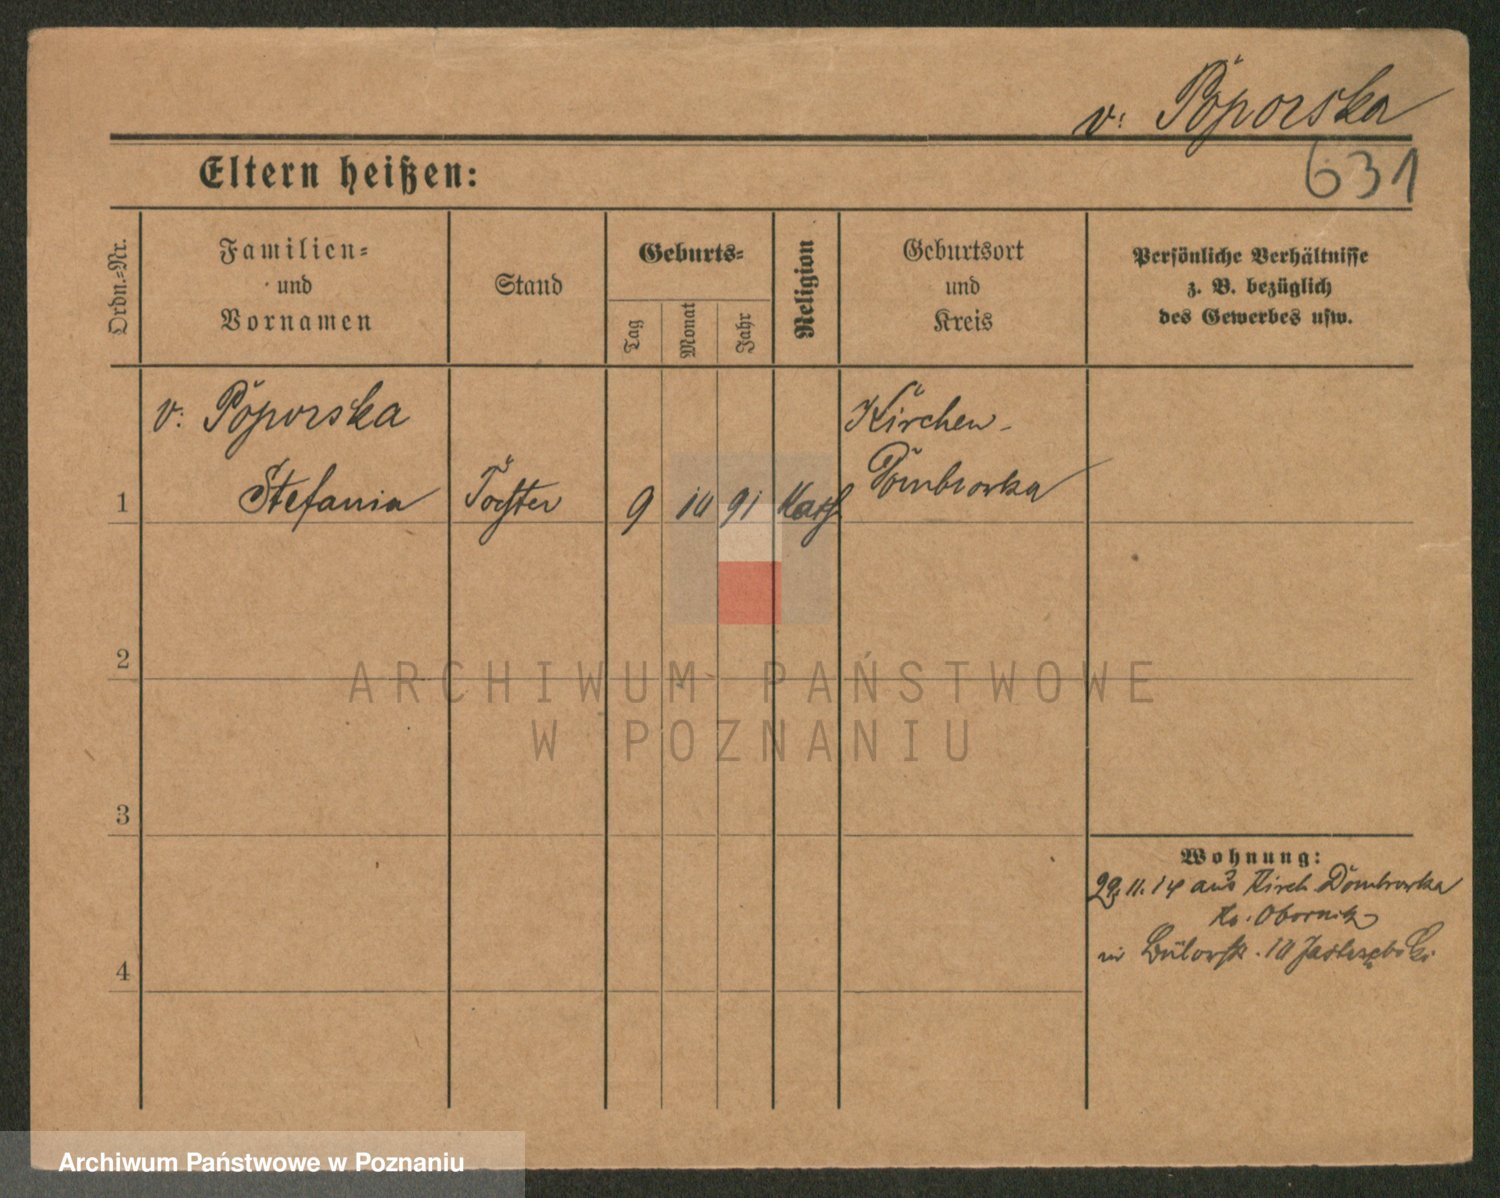 v: Poporska
631
Eltern heißen:
Ordn.-Nr.
Familien-
und
Vornamen
Stand
Geburts-
Tag
Monat
Jahr
Religion
Geburtsort
und
Kreis
Persönliche Verhältnisse
z. B. bezüglich
des Gewerbes usw.
v: Poporska
Stefania
Tochter
9
10
91
Kath
Kirchen-
Dombrowka
1
2
3
4
Wohnung:
29.11.14 aus Kirch Dombrowka
Kr. Obornik
10
ARCHIWUM PAŃSTWOWE
W POZNANIU
Archiwum Państwowe w Poznaniu